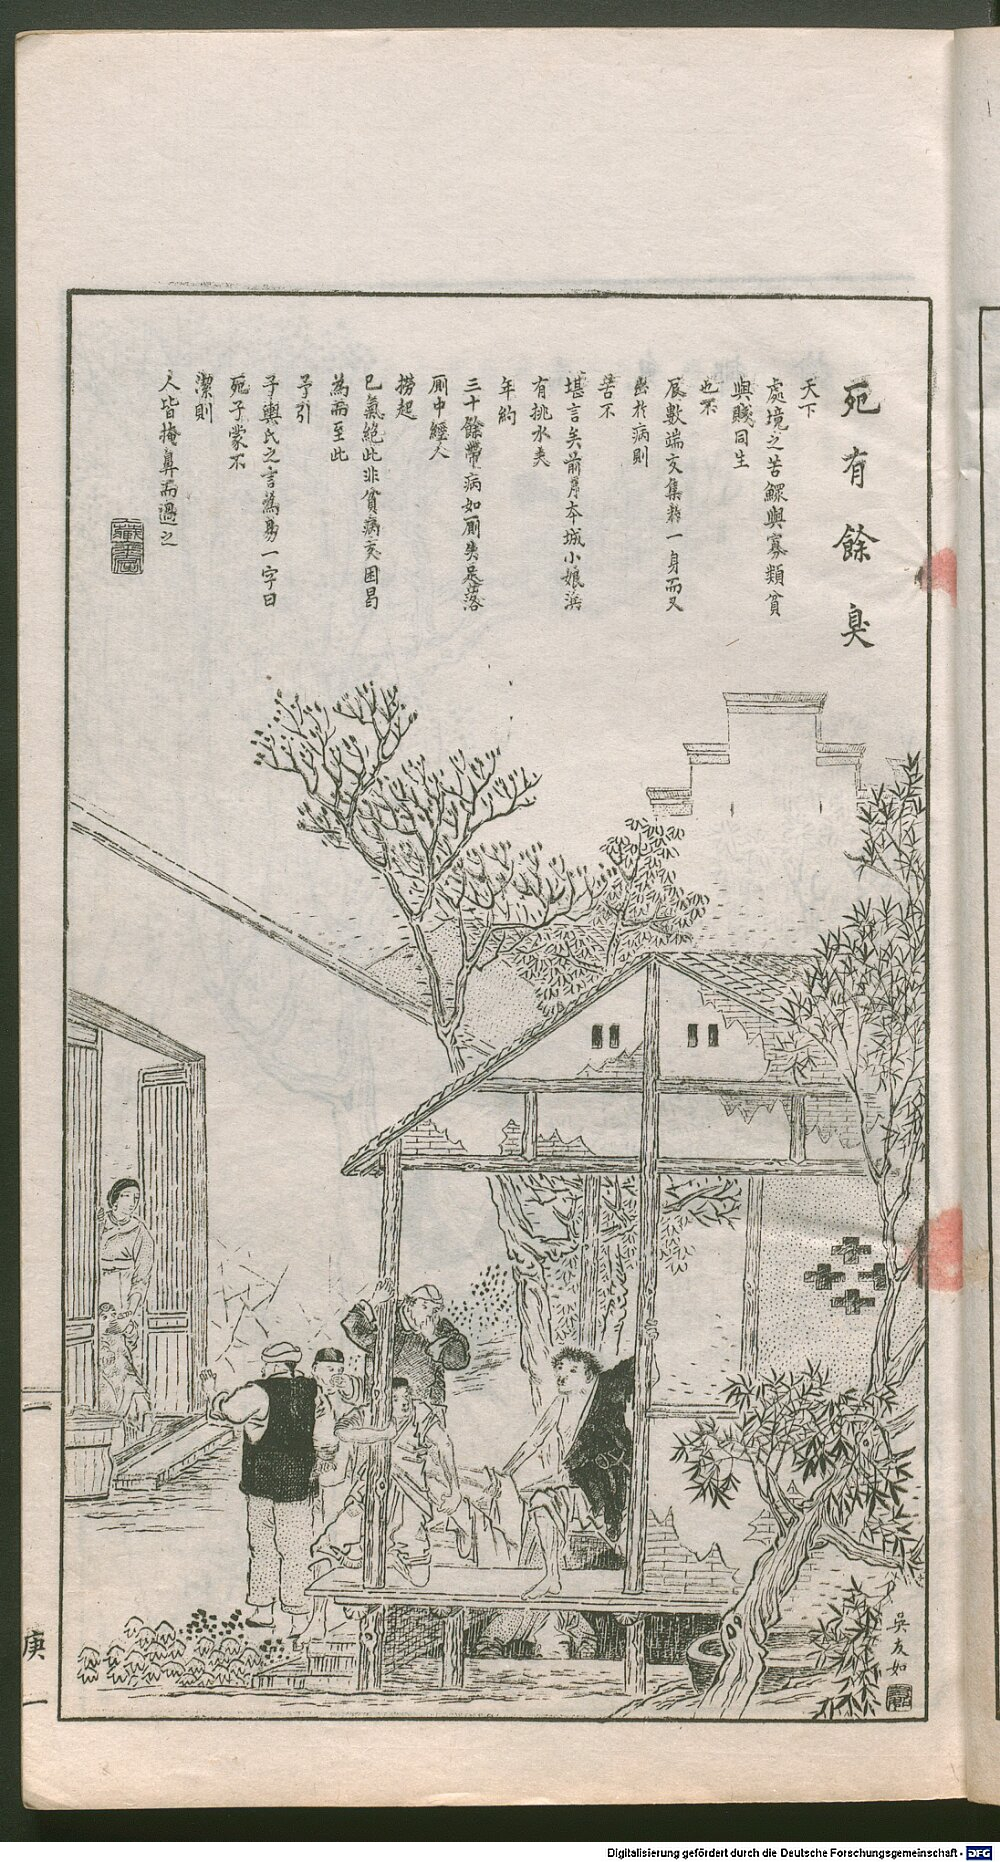 死有餘臭
天下
處境之苦鰥與寡類貧
與賤同生
也不
辰數端交集於一身而又
出於病則
苦不
堪言矣前月本城小娘浜
有挑水夫
年約
三十餘帶病如廁失足落
廁中經人
撈起
已氣絕此非貧病交困曷
為而至此
予引
子輿氏之言為易一字曰
死子蒙不
潔則
人皆掩鼻而過之
吳友如
庚
一
Digitalisierung gefördert durch die Deutsche Forschungsgemeinschaft - DFG